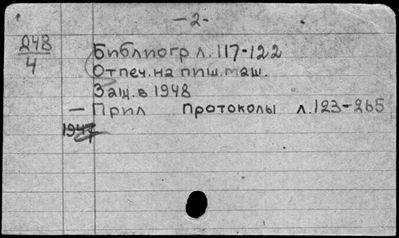 -2-
248
4
Библиогр л. 117-122
Отпеч. на пиш. маш.
Защ. в 1948
— Прил Протоколы л. 123-265
1947